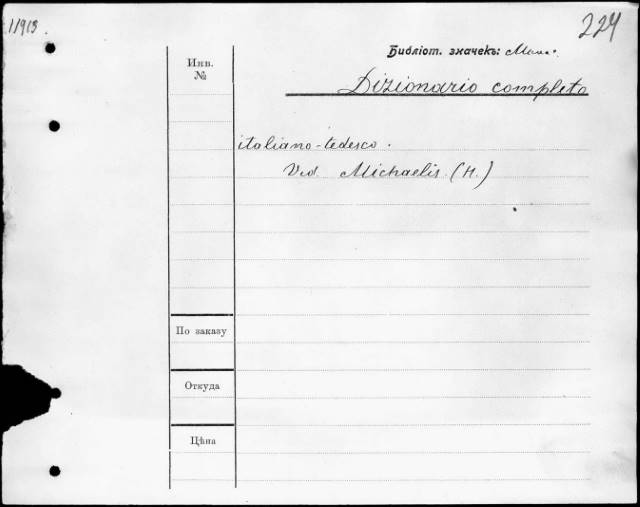 11913.
224
Библіот. значекъ:
Инв.
№
Dizionario completo
italiano-tedesco.
Vid. Michaelis. (H.)
По заказу
Откуда
Цѣна